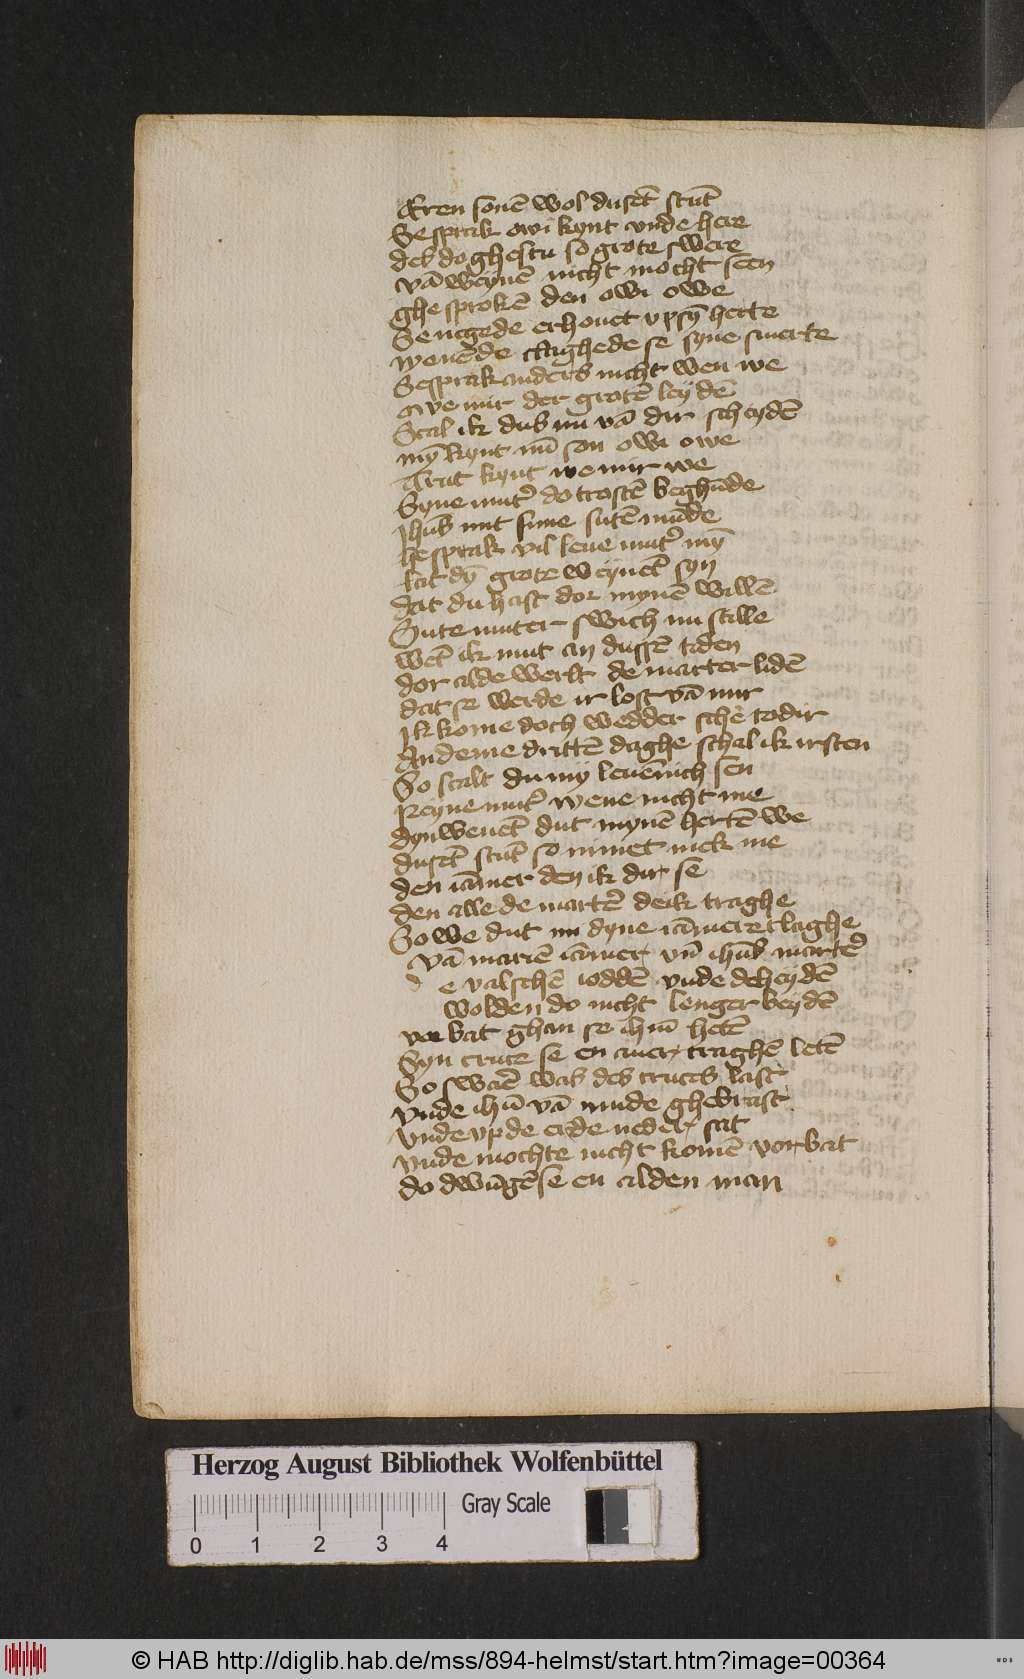 Eren sonē wol dusēt stūt
Se sprak owi kynt vnde here
des doghestu so grote swere
vā weynē nicht mocht seen
ghe sprokē den owi owe
Se negede er houet vp sy̅ herte
wenēde claghede se syne smerte
Se sprak anders nicht wen we
Owe mir der grotē leydē
Scal ik dus nu vā dir scheydē
my̅ kynt mī son owi owe
Trut kynt we mir we
Syne mutʾ do trostē beghūde
ihūs mit sime sutē mūde
he sprak vil leue mutʾ my̅
lat dy̅ grote weynēt syn
dat du hast dor mynē willē
Sute muter swich nu stille
wēt ik mut an dussē tiden
dor alde werlt de marter lidē
dat se werde ir lost vā mir
Ik kome doch wedder schē to dir
An deme drittē daghe schal ik irsten
So scalt du my leuēnich sen
Reyne mutʾ wene nicht me
dyn wenēt dut mynē hertē we
dusēt stūt so mmet mek me
den iāmer den ik dir se
den alle de martē de ik traghe
So we dut mi dyne iāmer claghe
vā mariē iāmer vn̄ ihūs martē
d e valschē ioddē vnde de heydē
wolden do nicht lenger beydē
vor bat ghan se ihm̄ hetē
Syn cruce se en auer traghē letē
So swaē was des cruces last
vnde ihū vā mude ghebrast
vnde vp de erde neder sat
vnde mochte nicht komē vorbat
do dwūgē se en alden man
Herzog August Bibliothek Wolfenbüttel
Gray Scale
0 1 2 3 4
© HAB http://diglib.hab.de/mss/894-helmst/start.htm?image=00364